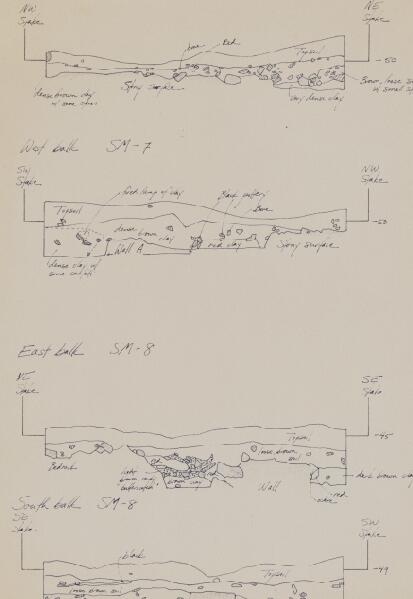 NW
Stake
NE
Stake
bone
Red
Topsoil
-50
dense brown clay
Stony surface
very dense clay
West balk SM-7
SW
Stake
NW
Stake
fired lump of clay
Black pottery
Bone
Topsoil
-50
dense
brown
clay
Wall A
red clay
Stony surface
dense clay w/
East balk SM-8
NE
Stake
SE
Stake
Topsoil
-45
loose brown
soil
Bedrock
Wall
dark brown clay
red
South balk SM-8
SE
Stake
SW
Stake
black
Topsoil
-49
loose brown soil